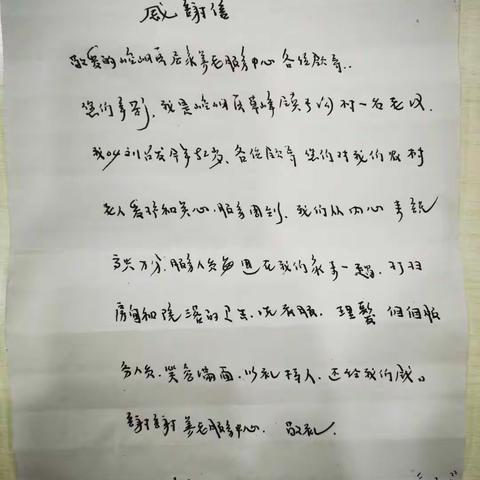 感谢信
敬爱的崆峒区居家养老服务中心各位领导..
您们辛苦了,我是崆峒区草峰镇 村一名老汉.
我叫刘 发 年 2岁、各位领导您们对我们农村
老人爱护和关心、服务周到、我们从内心来说
十分 服务人员每週在我们家来一趟. 打扫
房间和院落的卫生、洗衣服、理髮 個個服
务人员、笑容满面、以礼待人、送给我们
謝謝养老服务中心. 敬礼.